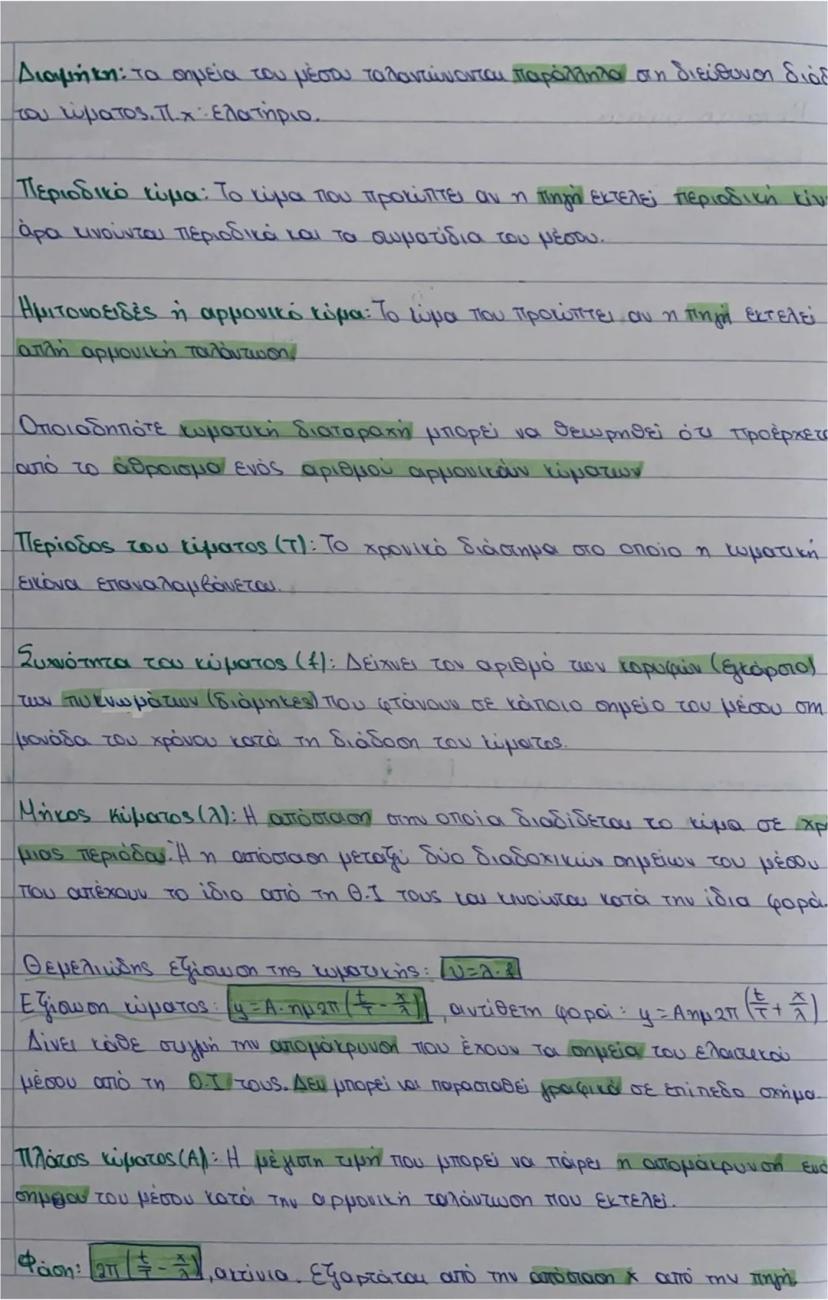 Διαμήκη: τα σημεία του μέσου ταλαντώνονται παράλληλα στη διεύθυνση διάδ
του κύματος. Π.χ: Ελατήριο.
Περιοδικό κύμα: Το κύμα που προκύπτει αν η πηγή εκτελεί περιοδική κίν
άρα κινούνται περιοδικά και τα σωματίδια του μέσου.
Ημιτονοειδές ή αρμονικό κύμα: Το κύμα που προκύπτει αν η πηγή εκτελεί
απλή αρμονική ταλάντωση.
Οποιαδηπότε κυματική διαταραχή μπορεί να θεωρηθεί ότι προέρχετα
από το άθροισμα ενός αριθμού αρμονικών κύματων
Περίοδος του κύματος (T): Το χρονικό διάστημα στο οποίο η κυματική
εικόνα επαναλαμβάνεται.
Συχνότητα του κύματος (f): Δείχνει τον αριθμό των κορυφών (εγκάρσιο)
των πυκνωμάτων (διάμηκες) που φτάνουν σε κάποιο σημείο του μέσου στη
μονάδα του χρόνου κατά τη διάδοση του κύματος.
Μήκος κύματος (λ): Η απόσταση στην οποία διαδίδεται το κύμα σε χρ
μιας περιόδου. Ή η απόσταση μεταξύ δύο διαδοχικών σημείων του μέσου
που απέχουν το ίδιο από τη Θ.Ι τους και κινούνται κατά την ίδια φορά.
Θεμελιώδης εξίσωση της κυματικής: υ=λ·f
Εξίσωση κύματος: y=A·ημ2π(t/T - x/λ), αντίθετη φορά: y=Aημ2π(t/T + x/λ)
Δίνει κάθε στιγμή την απομάκρυνση που έχουν τα σημεία του ελαστικού
μέσου από τη Θ.Ι τους. Δεν μπορεί να παρασταθεί γραφικά σε επίπεδο σχήμα.
Πλάτος κύματος (A): Η μέγιστη τιμή που μπορεί να πάρει η απομάκρυνση ενό
σημείου του μέσου κατά την αρμονική ταλάντωση που εκτελεί.
Φάση: 2π(t/T - x/λ), ακτίνια. Εξαρτάται από την απόσταση x από την πηγή